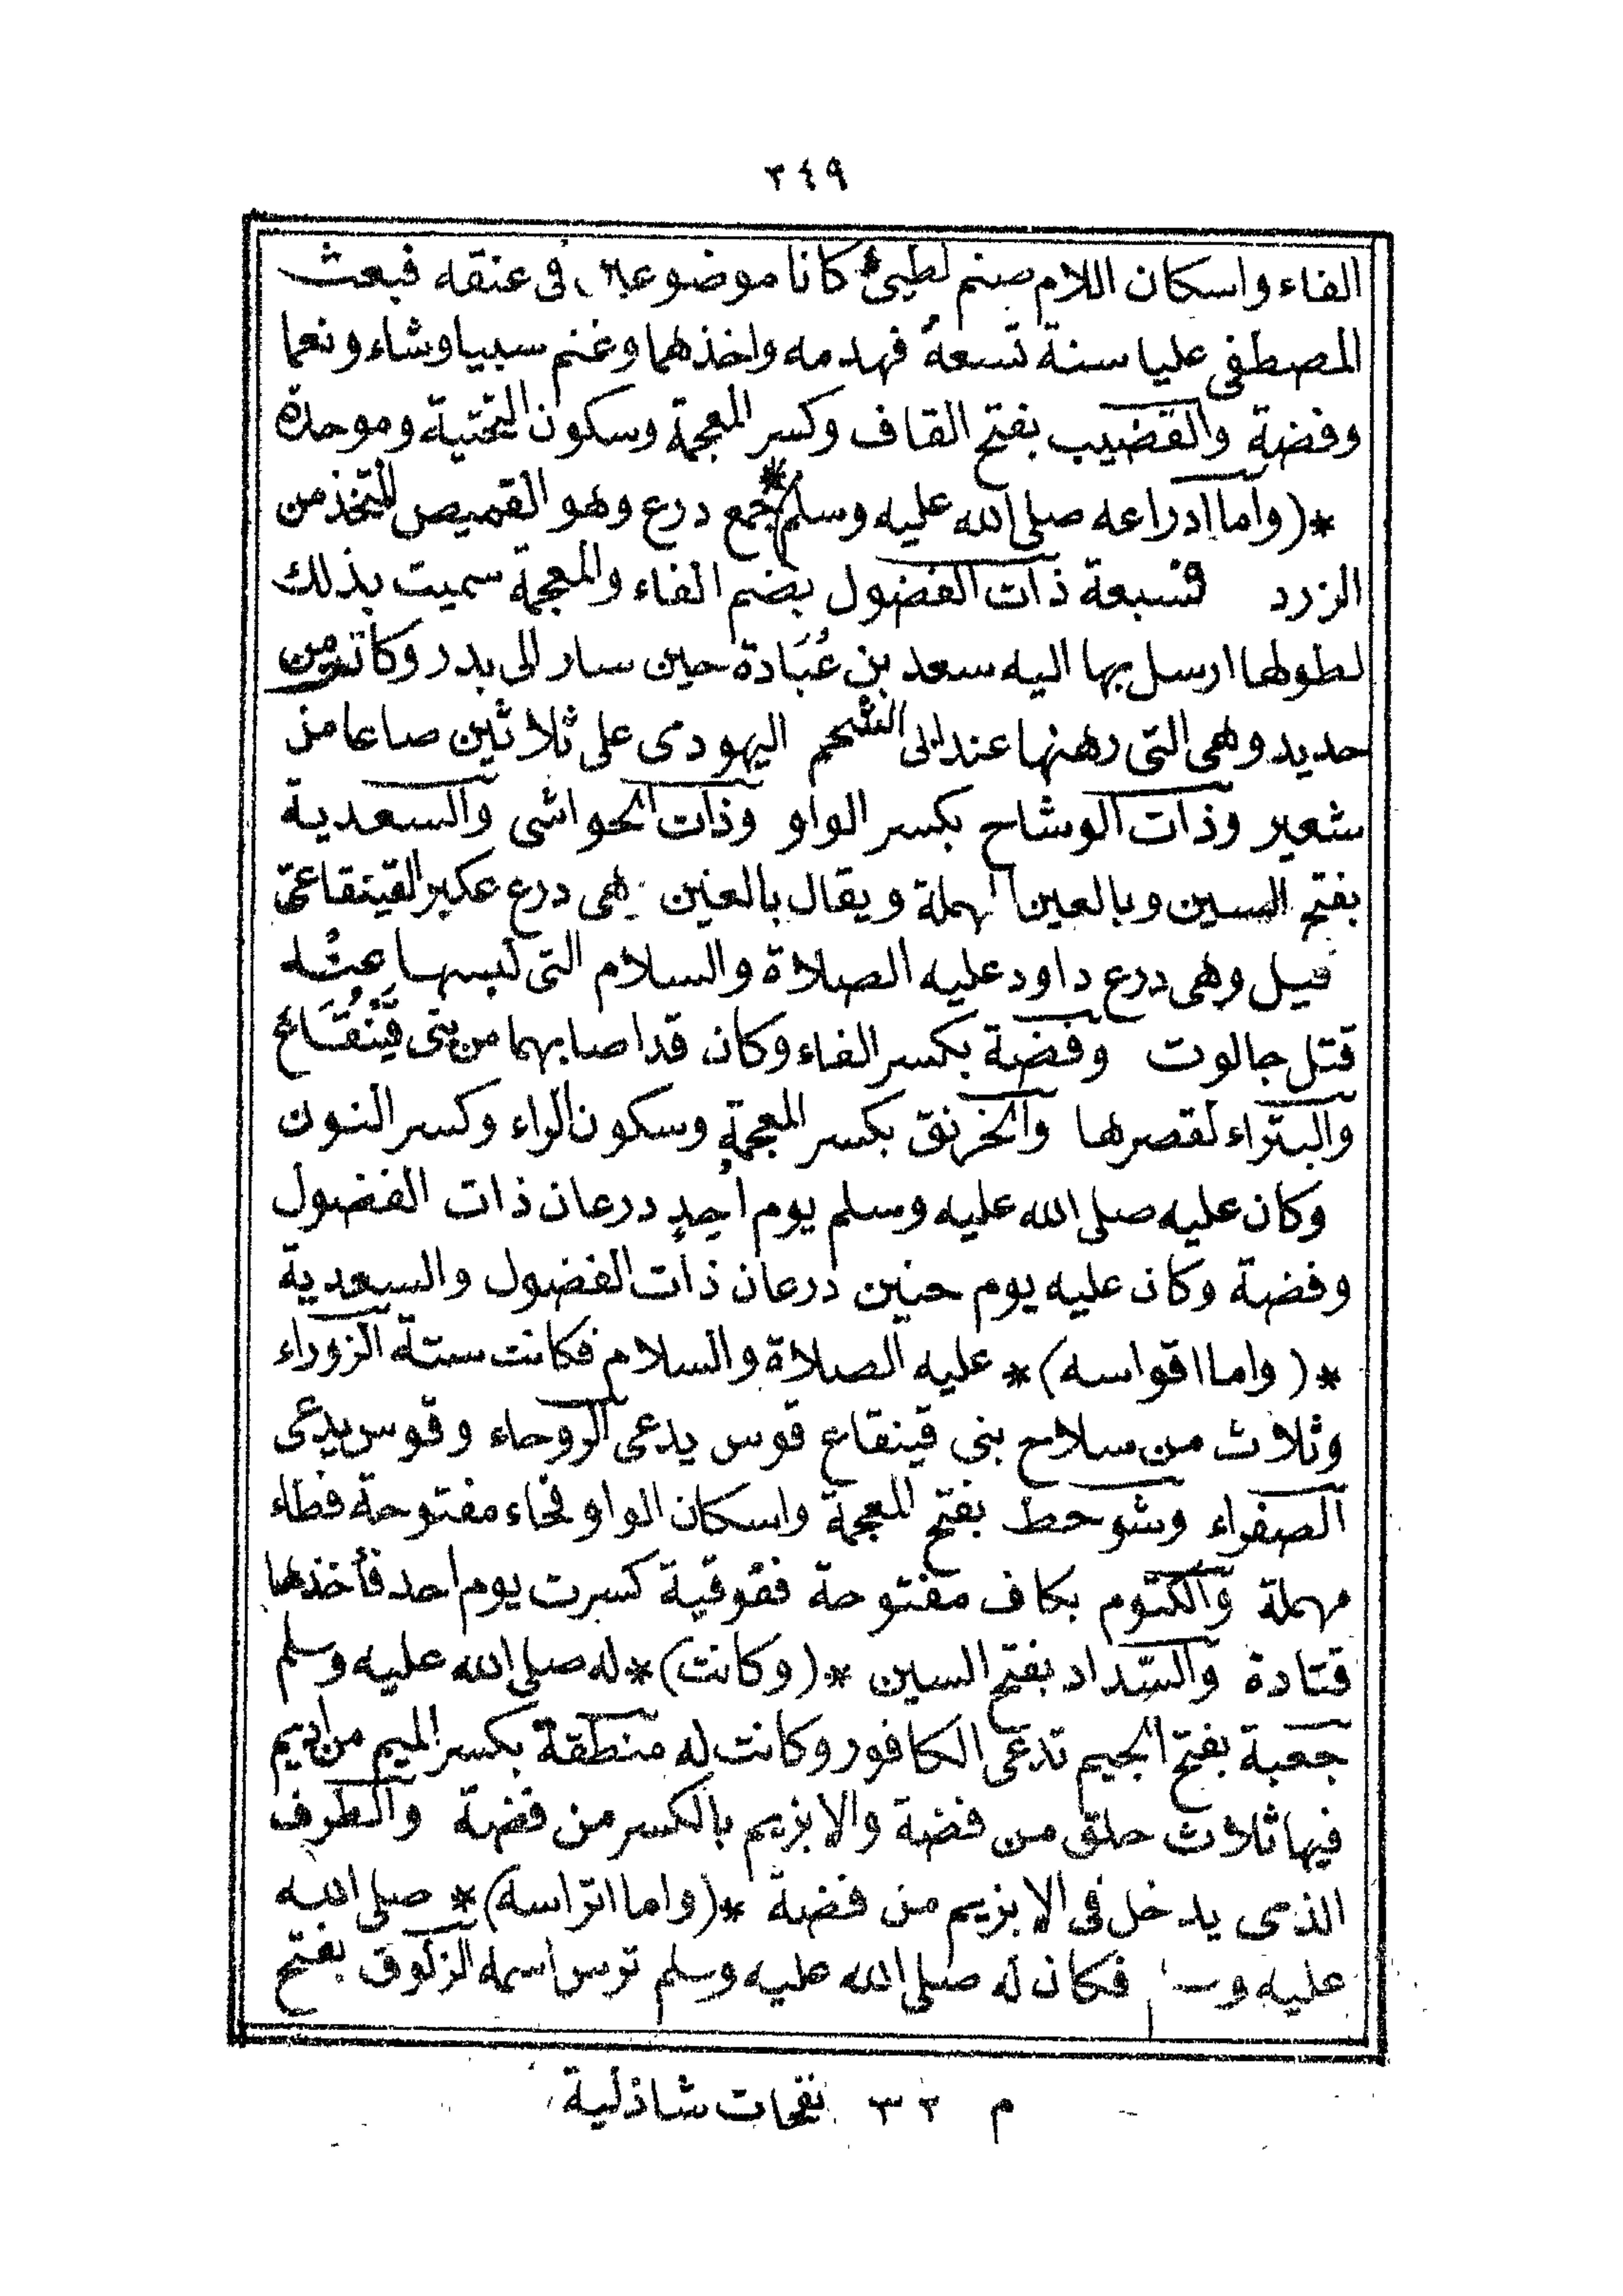 ٢٤٩
الفاء واسكان اللام صنم لطيئ كانا موضوعين فى عنقه فبعث
المصطفى عليا سنة تسعة فهدمه واخذهما وغنم سبيا وشاء ونعما
وفضة والقضيب بفتح القاف وكسر المعجمة وسكون التحتية وموحدة
*(واما ادراعه صلى الله عليه وسلم)* جمع درع وهو القميص المتخذ من
الزرد فسبعة ذات الفضول بضم الفاء والمعجمة سميت بذلك
لطولها ارسل بها اليه سعد بن عُبَادة حين سار الى بدر وكانت من
حديد وهى التى رهنها عند ابى الشحم اليهودى على ثلاثين صاعا من
شعير وذات الوشاح بكسر الواو وذات الحواشى والسعدية
بفتح السين وبالعين المهملة ويقال بالغين هى درع عكير القينقاعى
قيل وهى درع داود عليه الصلاة والسلام التى لبسها حين
قتل جالوت وفضة بكسر الفاء وكان قد اصابهما من بنى قَيْنُقَاع
والبتراء لقصرها والخرنق بكسر المعجمة وسكون الراء وكسر النون
وكان عليه صلى الله عليه وسلم يوم اُحدٍ درعان ذات الفضول
وفضة وكان عليه يوم حنين درعان ذات الفضول والسعدية
*(واما اقواسه)* عليه الصلاة والسلام فكانت ستة الزوراء
وثلاث من سلاح بنى قينقاع قوس يدعى الروحاء وقوس يدعى
الصفراء وشوحط بفتح المعجمة واسكان الواو فحاء مفتوحة فطاء
مهملة والكتوم بكاف مفتوحة ففوقية كسرت يوم احد فأخذها
قتادة والسّداد بفتح السين *(وكانت)* له صلى الله عليه وسلم
جعبة بفتح الجيم تدعى الكافور وكانت له منطقة بكسر الميم من اديم
فيها ثلاث حلق من فضة والابزيم بالكسر من فضة والطرف
الذى يدخل فى الابزيم من فضة *(واما اتراسه)* صلى الله
عليه فكان له صلى الله عليه وسلم ترس اسمه الزلوق بفتح
م ٣٢ نفحات شاذلية